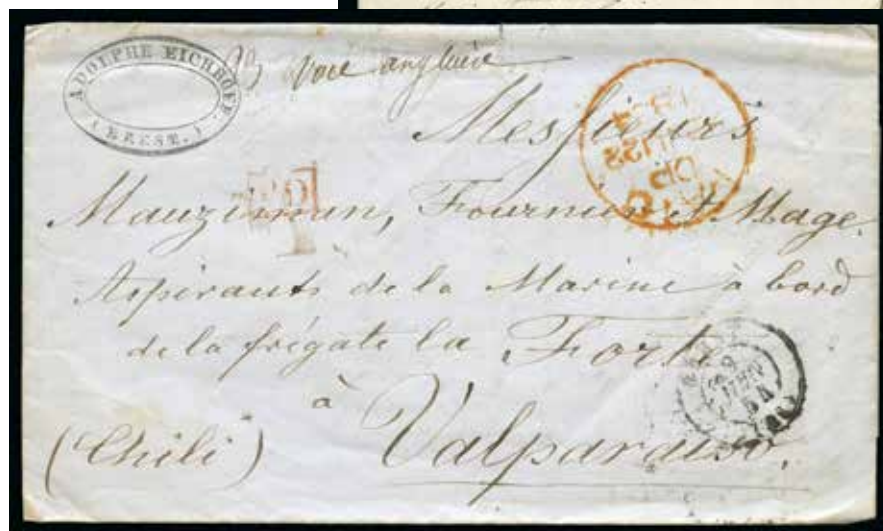 ADOLPHE EICHHOFF.
(BREST.)
voie anglaise
Messieurs
Mauziman, Fournier et Mage.
Aspirants de la Marine à bord
de la frégate la Forte
à
Valparaiso.
(Chili)